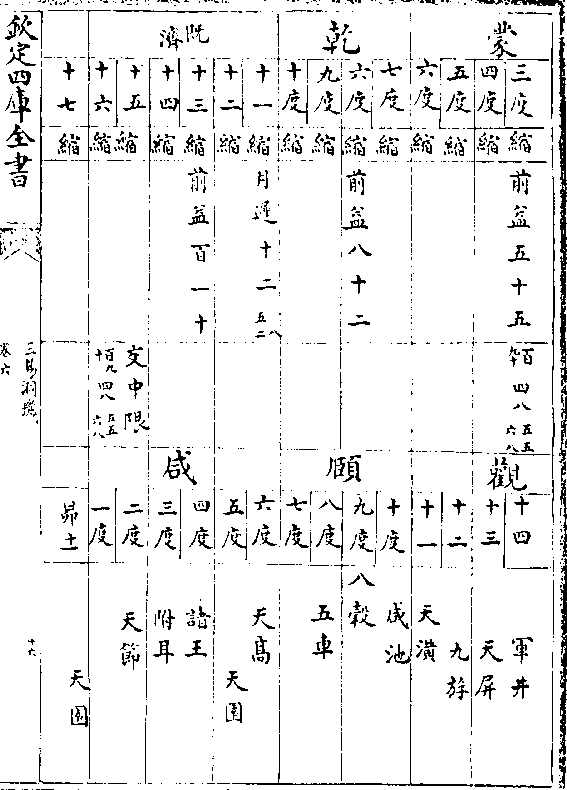 蒙　乾　既濟
三度　四度　五度　六度　七度　六度　九度　十度　十一　十二　十三　十四　十五　十六　十七
縮　縮　縮　縮　縮　縮　縮　縮　縮　縮　縮　縮　縮　縮　縮
前益五十五　前益八十二　月遲十二五二八　前益百一十
百　四八五五六八　交中限　四八　六八
觀　頤　咸
十四　十三　十二　十一　十度　九度　八度　七度　六度　五度　四度　三度　二度　一度　昴十一
軍井　天屏　九斿　天潢　咸池　八穀　五車　天高　天園　諸王　附耳　天節　天園
欽定四庫全書
卷六
十六